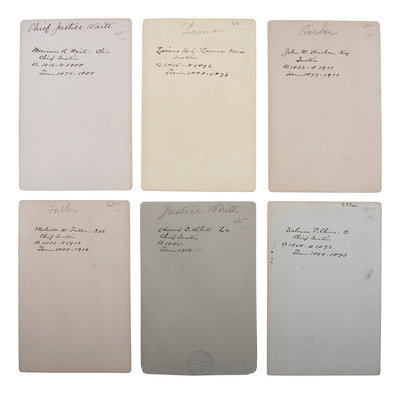 Chief Justice Waite
Morrison R. Waite - Ohio
Chief Justice
B. 1816 - D. 1888
Term 1874 - 1888
Lamar
65-
Lucius Q. C. Lamar Miss
Justice
B. 1825 - D. 1893
Term 1888 - 1893
Harlan
65-
John M. Harlan Ky
Justice
B. 1833 - D. 1911
Term 1877 - 1911
Fuller
65-
Melville W. Fuller - Ill
Chief Justice
B. 1833 - D. 1910
Term 1888 - 1910
Justice White
65-
Edward D. White La
Chief Justice
B. 1845
Term 1910 -
Salmon P. Chase. O
Chief Justice
B. 1808 - D. 1873
Term 1864 - 1873